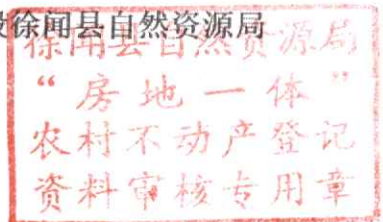 徐闻县自然资源局
徐闻县自然资源局
“房地一体”
农村不动产登记
资料审核专用章